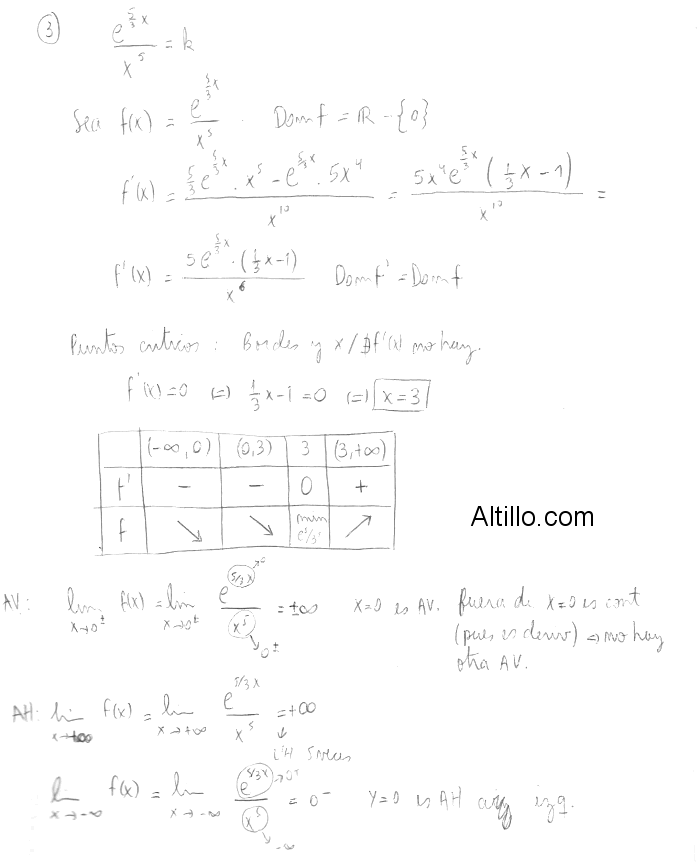 3
e^{5/3 x} / x^5 = k
Sea f(x) = e^{5/3 x} / x^5 . Dom f = ℝ - {0}
f'(x) = (5/3 e^{5/3 x} . x^5 - e^{5/3 x} . 5x^4) / x^10 = 5x^4 e^{5/3 x} (1/3 x - 1) / x^10 =
f'(x) = 5e^{5/3 x} . (1/3 x - 1) / x^6 Dom f' = Dom f
Puntos críticos : Bordes y x / ∄ f'(x) no hay.
f'(x) = 0 (=) 1/3 x - 1 = 0 (=) x = 3
(-∞, 0) (0,3) 3 (3,+∞)
f' - - 0 +
f ↘ ↘ min ↗
Altillo.com
AV: lim x→0± f(x) = lim x→0± e^{5/3 x} / x^5 = ±∞ x=0 es AV. fuera de x=0 es cont
→0± (pues es deriv) ⇒ no hay
otra AV.
AH: lim x→+∞ f(x) = lim x→+∞ e^{5/3 x} / x^5 = +∞
↓
L'H 5 veces
lim x→-∞ f(x) = lim x→-∞ e^{5/3 x} →0+ / x^5 = 0- y=0 es AH izq.
→-∞